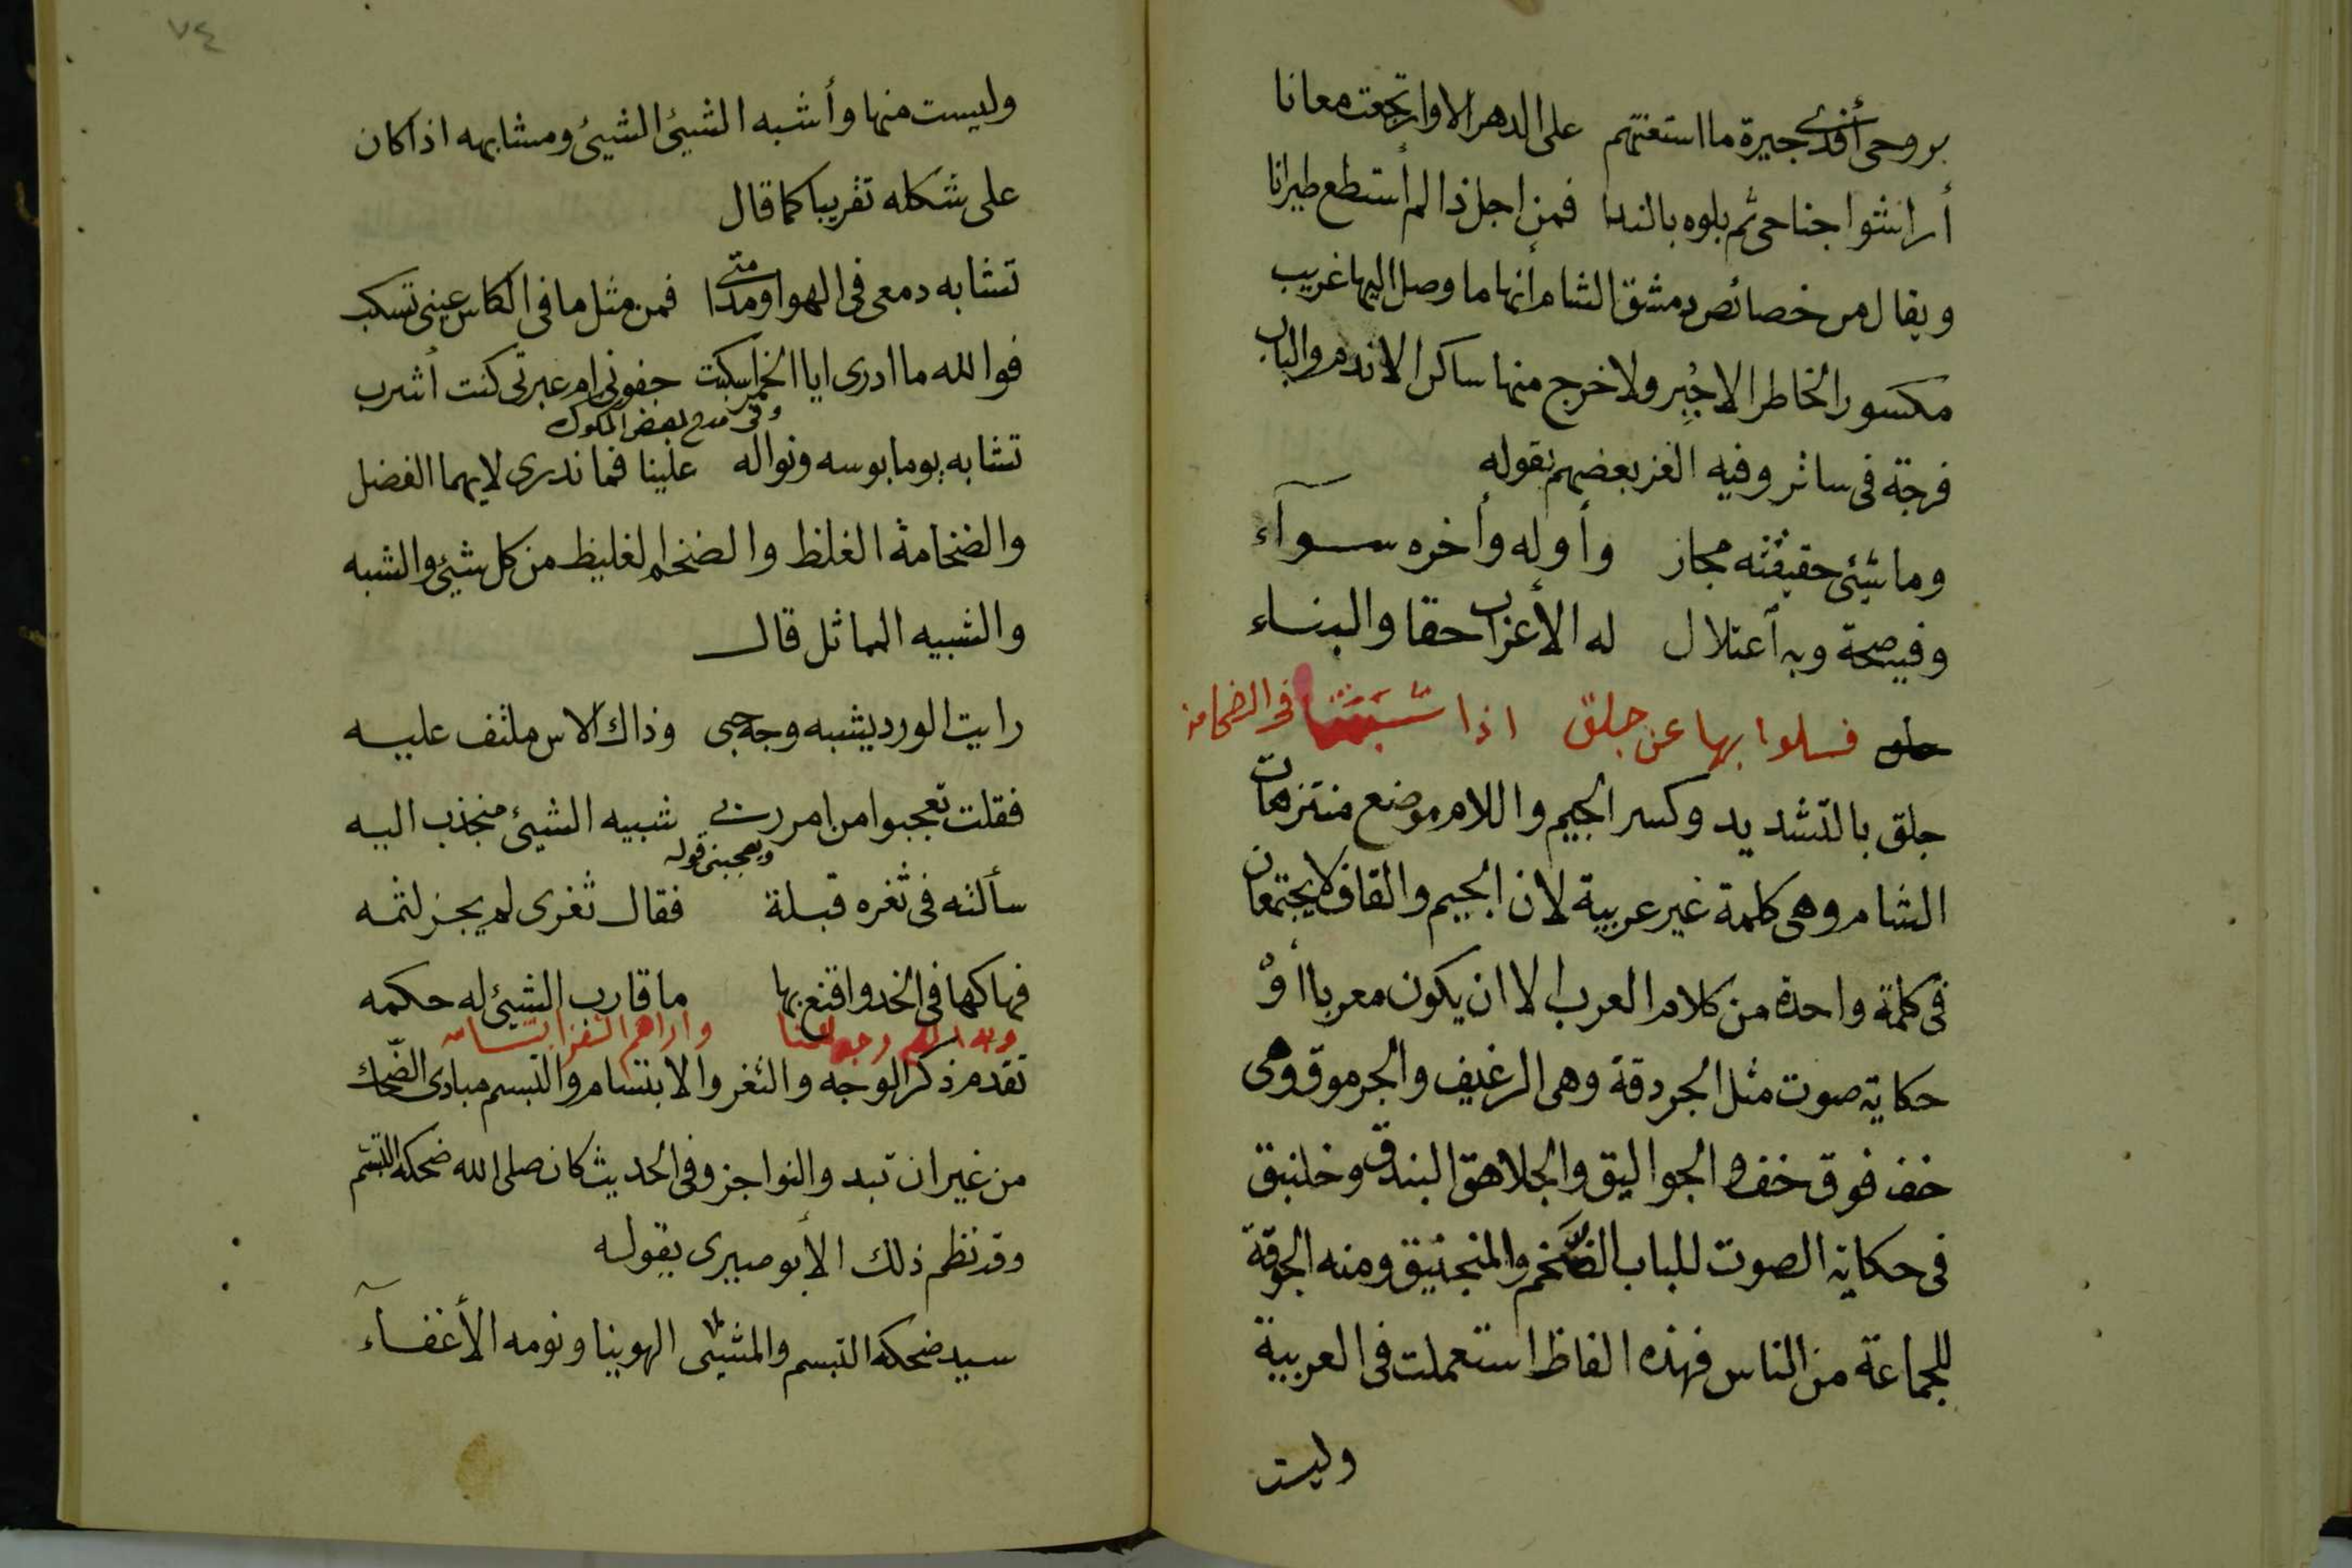 بروحى أفدى جيرة ما استعنتهم على الدهر الا وارتجعت معانا
أراشوا جناحى ثم بلوه بالندا فمن اجل ذا لم أستطع طيرانا
ويقال من خصائص دمشق الشام أنها ما وصل اليها غريب
مكسور الخاطر الا جُبِر ولا خرج منها ساكن الا ندم والباب
فرجة فى ساتر وفيه الغز بعضهم بقوله
وما شيئ حقيقته مجاز وأوله وأخره سوآء
وفيه صحة وبه أعتلال له الأعراب حقا والبناء
فسلوا بها عن جلق اذا شبهتنا فى الضخامة
جلق بالتشديد وكسر الجيم واللام موضع منتزهات
الشام وهى كلمة غير عربية لان الجيم والقاف لا يجتمعان
فى كلمة واحدة من كلام العرب الا ان يكون معربا أو
حكاية صوت مثل الجردقة وهى الرغيف والجرموق وهى
خف فوق خف والجواليق والجلاهق البندق وخلنبق
فى حكاية الصوت للباب الضخم والمنجنيق ومنه الجوقة
للجماعة من الناس فهذه الفاظ استعملت فى العربية
وليست
٧٤
وليست منها وأشبه الشيئ الشيئ ومشابهه اذا كان
على شكله تقريبا كما قال
تشابه دمعى فى الهوا ومدا متى فمن مثل ما فى الكاس عينى تسكب
فوالله ما ادرى ايا الخمر اسكبت جفونى ام عبرتى كنت أشرب
وفى مدح بعض الملوك
تشابه يوما بوسه ونواله علينا فما ندرى لايهما الفضل
والضخامة الغلظ والضخم الغليظ من كل شيئ والشبه
والشبيه المماثل قال
رايت الورد يشبه وجه حبى وذاك الاس ملتف عليه
فقلت تعجبوا من امر ربى شبيه الشيئ منجذب اليه
ويعجبنى قوله
سألته فى ثغره قبلة فقال ثغرى لم يجز لثمه
فهاكها فى الخد واقنع بها ما قارب الشيئ له حكمه
واراهم الثغر ابتسامه
تقدم ذكر الوجه والثغر والابتسام والتبسم مبادى الضحك
من غير ان تبدو النواجز وفى الحديث كان صلى الله ضحكه التبسم
وقد نظم ذلك الأبوصيرى بقوله
سيد ضحكه التبسم والمشيى الهوينا ونومه الأغفآء